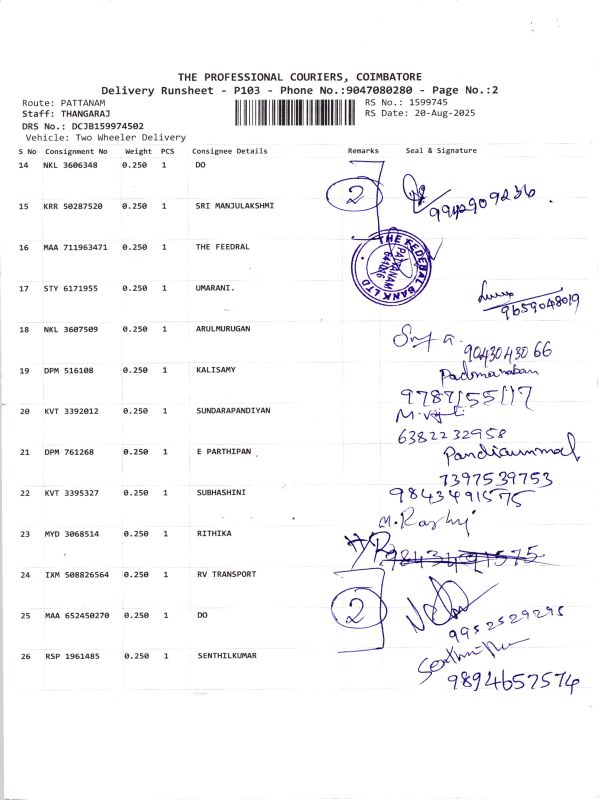 THE PROFESSIONAL COURIERS, COIMBATORE
Delivery Runsheet - P103 - Phone No.:9047080280 - Page No.:2
Route: PATTANAM
Staff: THANGARAJ
DRS No.: DCJB159974502
Vehicle: Two Wheeler Delivery
RS No.: 1599745
RS Date: 20-Aug-2025
S No Consignment No Weight PCS Consignee Details Remarks Seal & Signature
14 NKL 3606348 0.250 1 DO
2
9942909236
15 KRR 50287520 0.250 1 SRI MANJULAKSHMI
16 MAA 711963471 0.250 1 THE FEEDRAL
THE FEDERAL BANK LTD
PATTANAM
641016
17 STY 6171955 0.250 1 UMARANI.
9659048019
18 NKL 3607509 0.250 1 ARULMURUGAN
9043043066
19 DPM 516108 0.250 1 KALISAMY
Padmanaban
9787155117
20 KVT 3392012 0.250 1 SUNDARAPANDIYAN
6382232958
21 DPM 761268 0.250 1 E PARTHIPAN
Pandiammal
7397539753
22 KVT 3395327 0.250 1 SUBHASHINI
9843491575
23 MYD 3068514 0.250 1 RITHIKA
9843491575
24 IXM 508826564 0.250 1 RV TRANSPORT
2
25 MAA 652450270 0.250 1 DO
9952529295
26 RSP 1961485 0.250 1 SENTHILKUMAR
9894657574